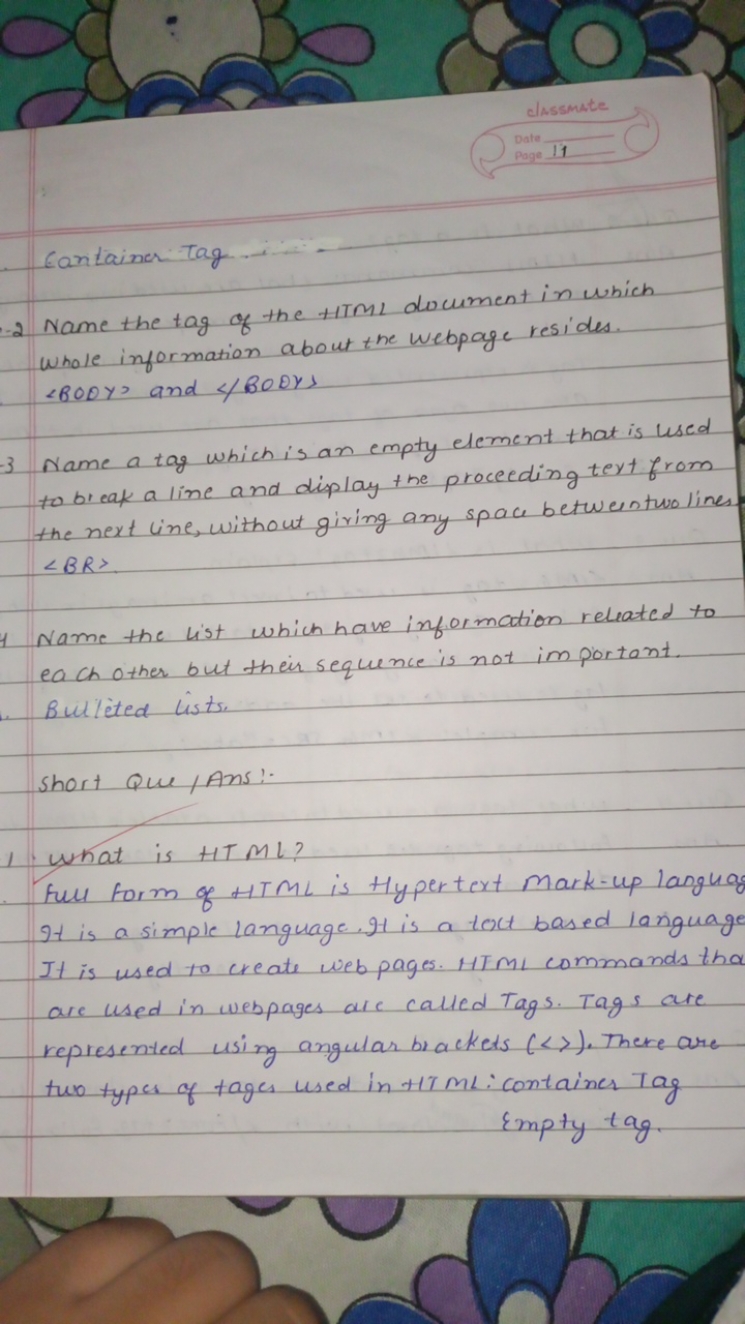 classmate
Date
Page 17
Container Tag
-2 Name the tag of the HTML document in which
whole information about the webpage resides.
<BODY> and </BODY>
-3 Name a tag which is an empty element that is used
to break a line and display the proceeding text from
the next line, without giving any space between two lines
<BR>
4 Name the list which have information releated to
each other but their sequence is not important.
Bulleted lists.
Short Que / Ans :-
1. What is HTML?
Full Form of HTML is Hypertext Mark-up languag
It is a simple language. It is a text based language
It is used to create web pages. HTML commands tha
are used in webpages are called Tags. Tags are
represented using angular brackets (< >). There are
two types of tages used in HTML: container Tag
Empty tag.